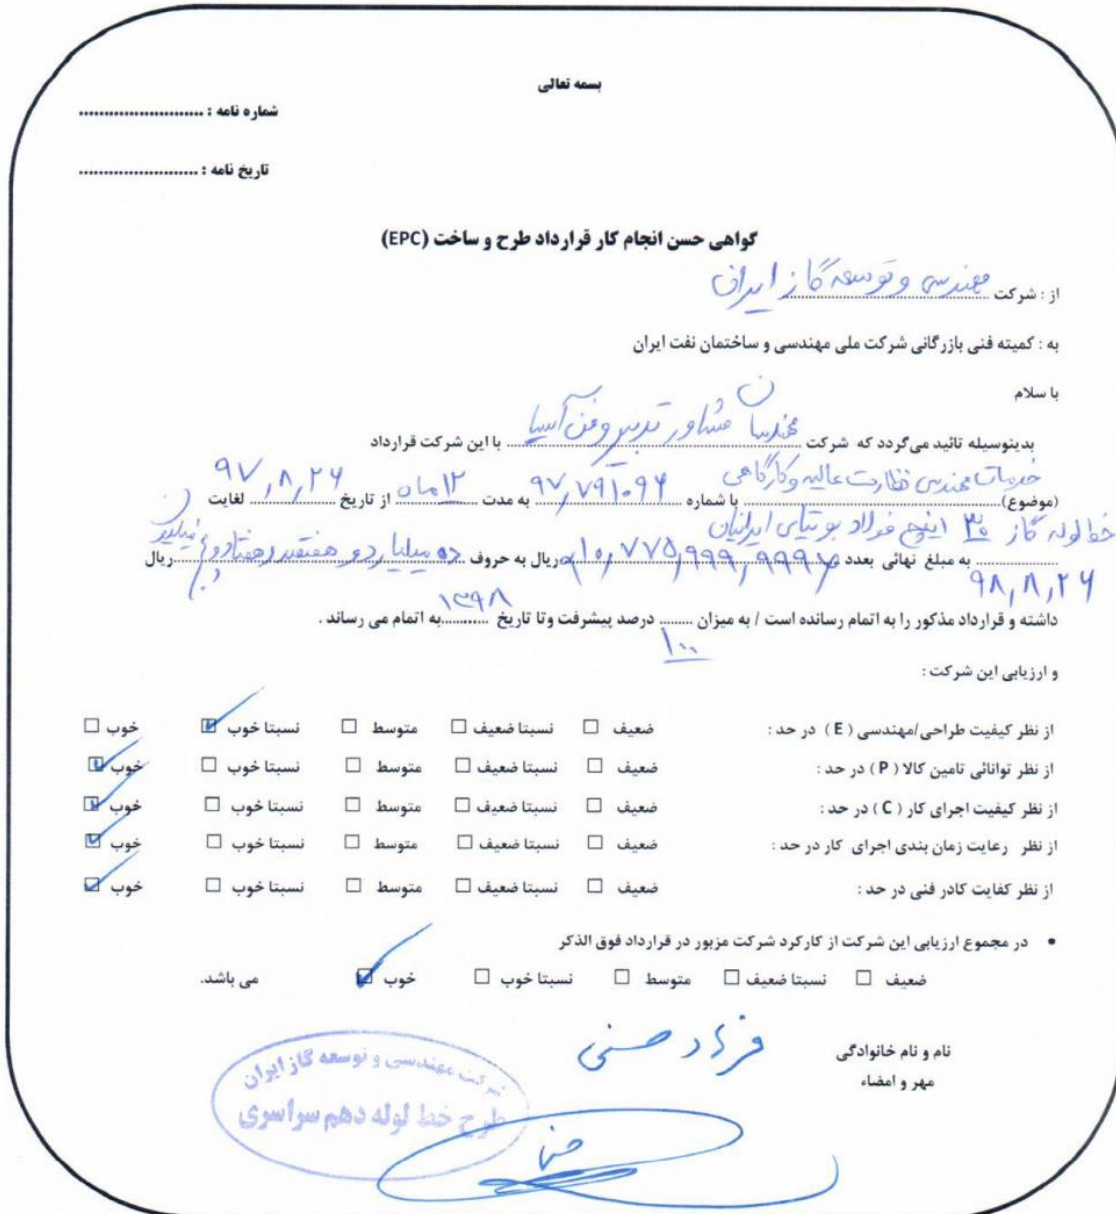 بسمه تعالی
شماره نامه : .........................
تاریخ نامه : ........................
گواهی حسن انجام کار قرارداد طرح و ساخت (EPC)
از : شرکت مهندسی و توسعه گاز ایران
به : کمیته فنی بازرگانی شرکت ملی مهندسی و ساختمان نفت ایران
با سلام
بدینوسیله تائید می‌گردد که شرکت مهندسان مشاور تدبیر و فن آسیا با این شرکت قرارداد
(موضوع) خدمات مهندسی نظارت عالیه و کارگاهی با شماره به مدت ۱۲ ماه از تاریخ ۹۷,۸,۲۶ لغایت
خط لوله گاز ۳۰ اینچ فولاد بوتیای ایرانیان
۹۸,۸,۲۶ به مبلغ نهائی بعدد ۱۰,۷۷۵,۹۹۹,۹۹۶ ریال به حروف ده میلیارد و هفتصد و هفتاد و پنج میلیون ریال
داشته و قرارداد مذکور را به اتمام رسانده است / به میزان ۱۰۰ درصد پیشرفت وتا تاریخ ۱۳۹۸ به اتمام می رساند .
و ارزیابی این شرکت :
از نظر کیفیت طراحی/مهندسی ( E ) در حد : ضعیف ☐ نسبتا ضعیف ☐ متوسط ☐ نسبتا خوب ☑ خوب ☐
از نظر توانائی تامین کالا ( P ) در حد : ضعیف ☐ نسبتا ضعیف ☐ متوسط ☐ نسبتا خوب ☐ خوب ☑
از نظر کیفیت اجرای کار ( C ) در حد : ضعیف ☐ نسبتا ضعیف ☐ متوسط ☐ نسبتا خوب ☐ خوب ☑
از نظر رعایت زمان بندی اجرای کار در حد : ضعیف ☐ نسبتا ضعیف ☐ متوسط ☐ نسبتا خوب ☐ خوب ☑
از نظر کفایت کادر فنی در حد : ضعیف ☐ نسبتا ضعیف ☐ متوسط ☐ نسبتا خوب ☐ خوب ☑
• در مجموع ارزیابی این شرکت از کارکرد شرکت مزبور در قرارداد فوق الذکر
ضعیف ☐ نسبتا ضعیف ☐ متوسط ☐ نسبتا خوب ☐ خوب ☑ می باشد.
نام و نام خانوادگی فرهاد حسنی
مهر و امضاء
شرکت مهندسی و توسعه گاز ایران
طرح خط لوله دهم سراسری